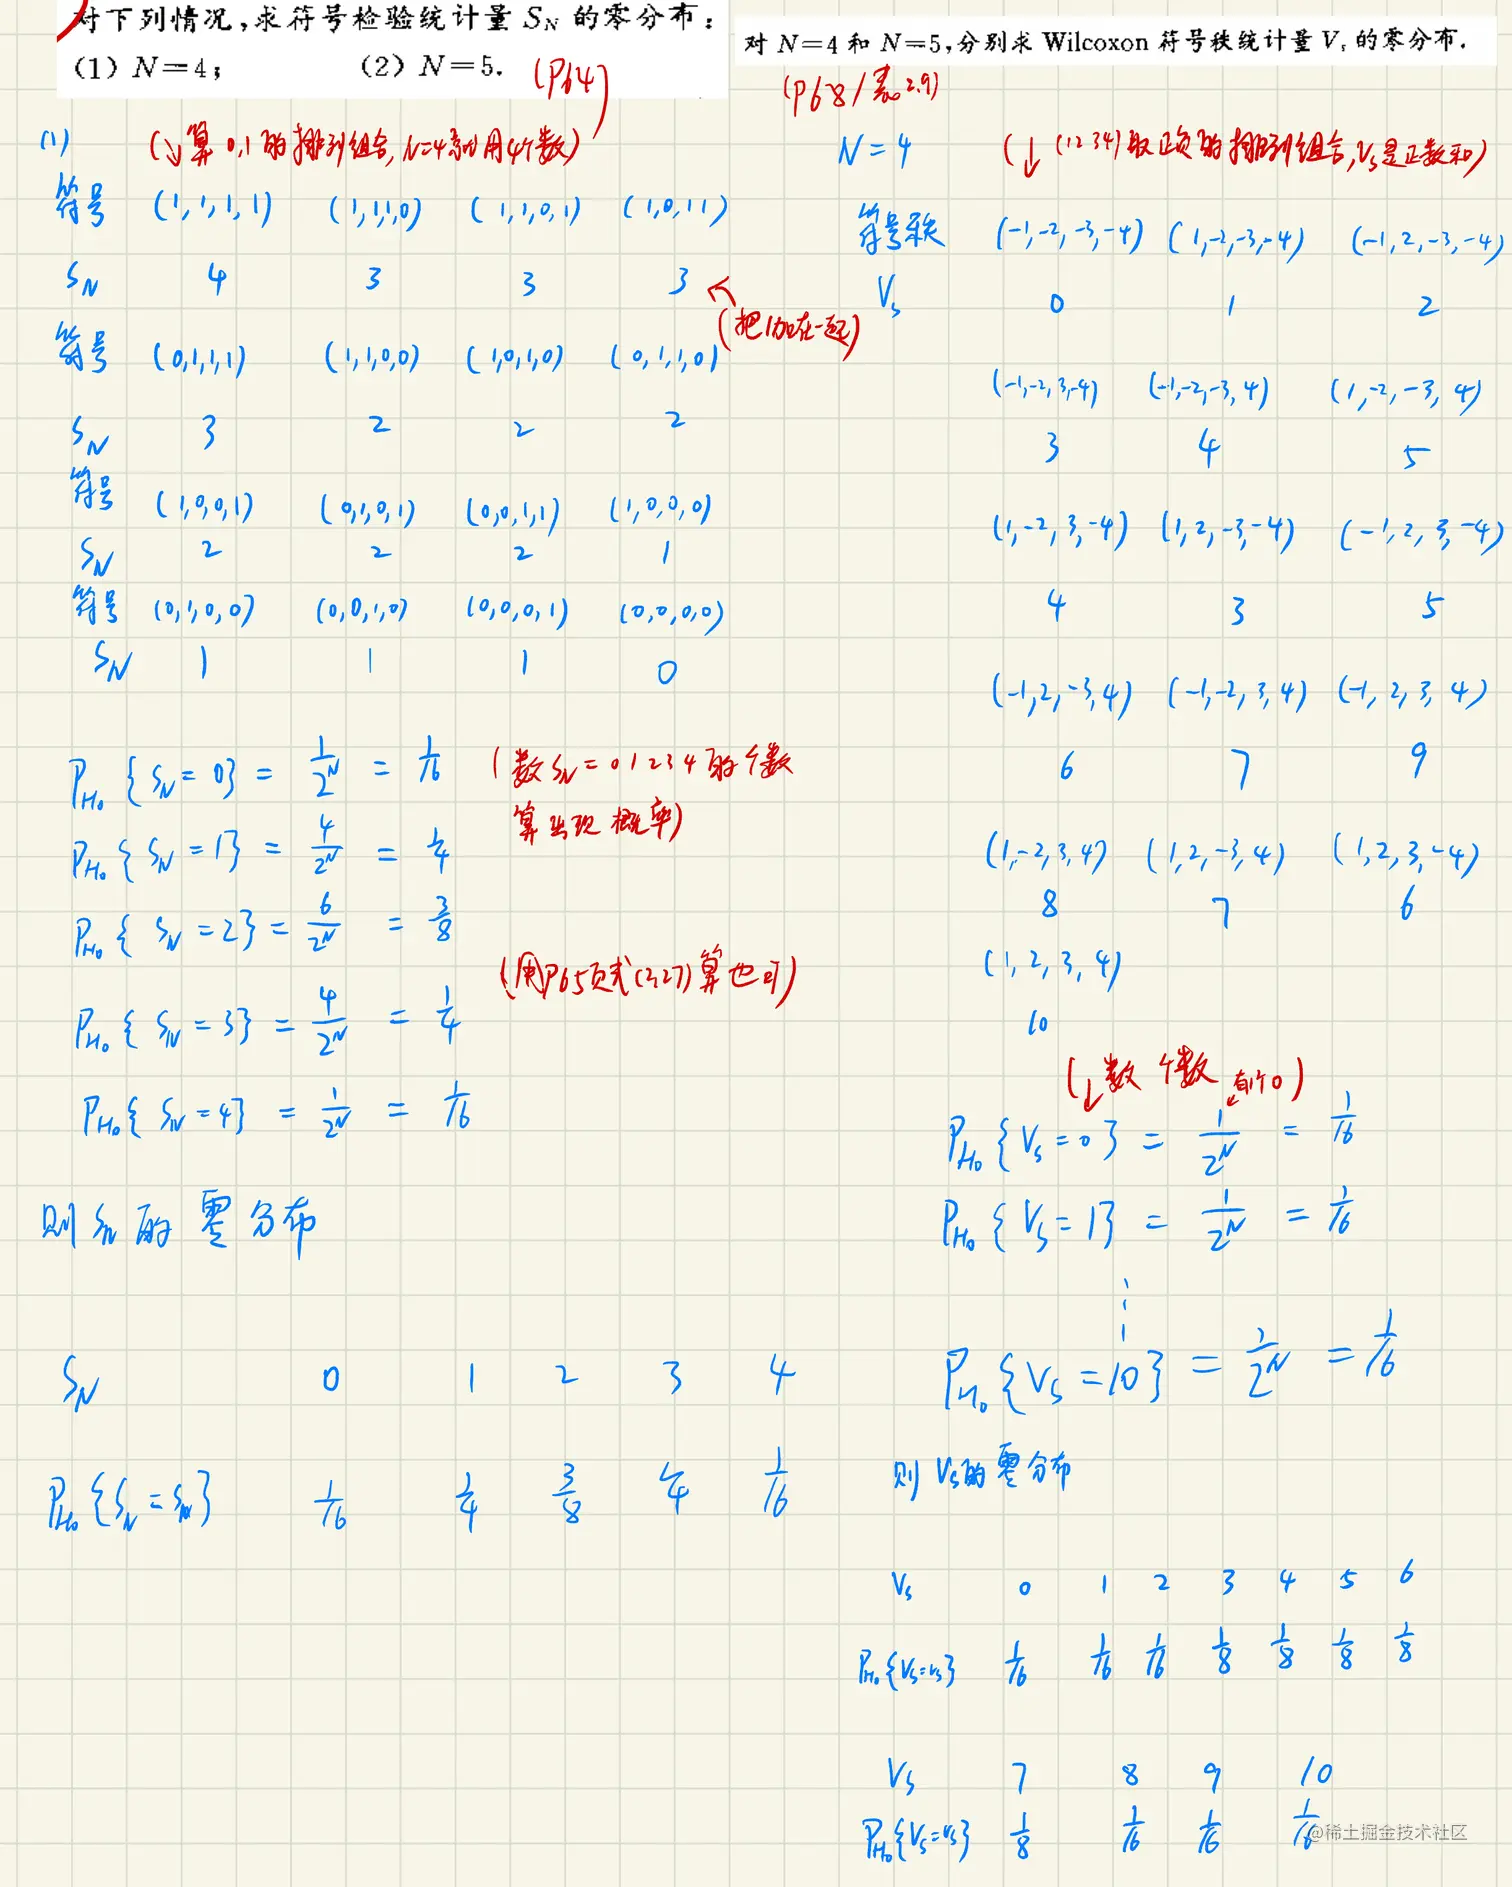 对下列情况,求符号检验统计量 S_N 的零分布:
(1) N=4; (2) N=5.
(P64)
(1) (↘算0,1的排列组合, N=4就用4个数)
符号 (1,1,1,1) (1,1,1,0) (1,1,0,1) (1,0,1 1)
S_N 4 3 3 3
(把1加在一起)
符号 (0,1,1,1) (1,1,0,0) (1,0,1,0) (0,1,1,0)
S_N 3 2 2 2
符号 (1,0,0,1) (0,1,0,1) (0,0,1,1) (1,0,0,0)
S_N 2 2 2 1
符号 (0,1,0,0) (0,0,1,0) (0,0,0,1) (0,0,0,0)
S_N 1 1 1 0
P_H₀{S_N=0} = 1/2^N = 1/16
(数S_N=0 1 2 3 4的个数
算出现概率)
P_H₀{S_N=1} = 4/2^N = 1/4
P_H₀{S_N=2} = 6/2^N = 3/8
(用P65页式(2.27)算也可)
P_H₀{S_N=3} = 4/2^N = 1/4
P_H₀{S_N=4} = 1/2^N = 1/16
则S_N的零分布
S_N 0 1 2 3 4
P_H₀{S_N=s_N} 1/16 1/4 3/8 1/4 1/16
对 N=4 和 N=5,分别求 Wilcoxon 符号秩统计量 V_s 的零分布.
(P68/表2.9)
N=4 (↓(1234)取正负的排列组合,V_s是正数和)
符号秩 (-1,-2,-3,-4) (1,-2,-3,-4) (-1,2,-3,-4)
V_s 0 1 2
(-1,-2,3,-4) (-1,-2,-3,4) (1,-2,-3,4)
3 4 5
(1,-2,3,-4) (1,2,-3,-4) (-1,2,3,-4)
4 3 5
(-1,2,-3,4) (-1,-2,3,4) (-1,2,3,4)
6 7 9
(1,-2,3,4) (1,2,-3,4) (1,2,3,-4)
8 7 6
(1,2,3,4)
10
(↓数个数 有1个0)
P_H₀{V_s=0} = 1/2^N = 1/16
P_H₀{V_s=1} = 1/2^N = 1/16
⋮
P_H₀{V_s=10} = 1/2^N = 1/16
则V_s的零分布
V_s 0 1 2 3 4 5 6
P_H₀{V_s=v_s} 1/16 1/16 1/16 1/8 1/8 1/8 1/8
V_s 7 8 9 10
P_H₀{V_s=v_s} 1/8 1/16 1/16 1/16
@稀土掘金技术社区